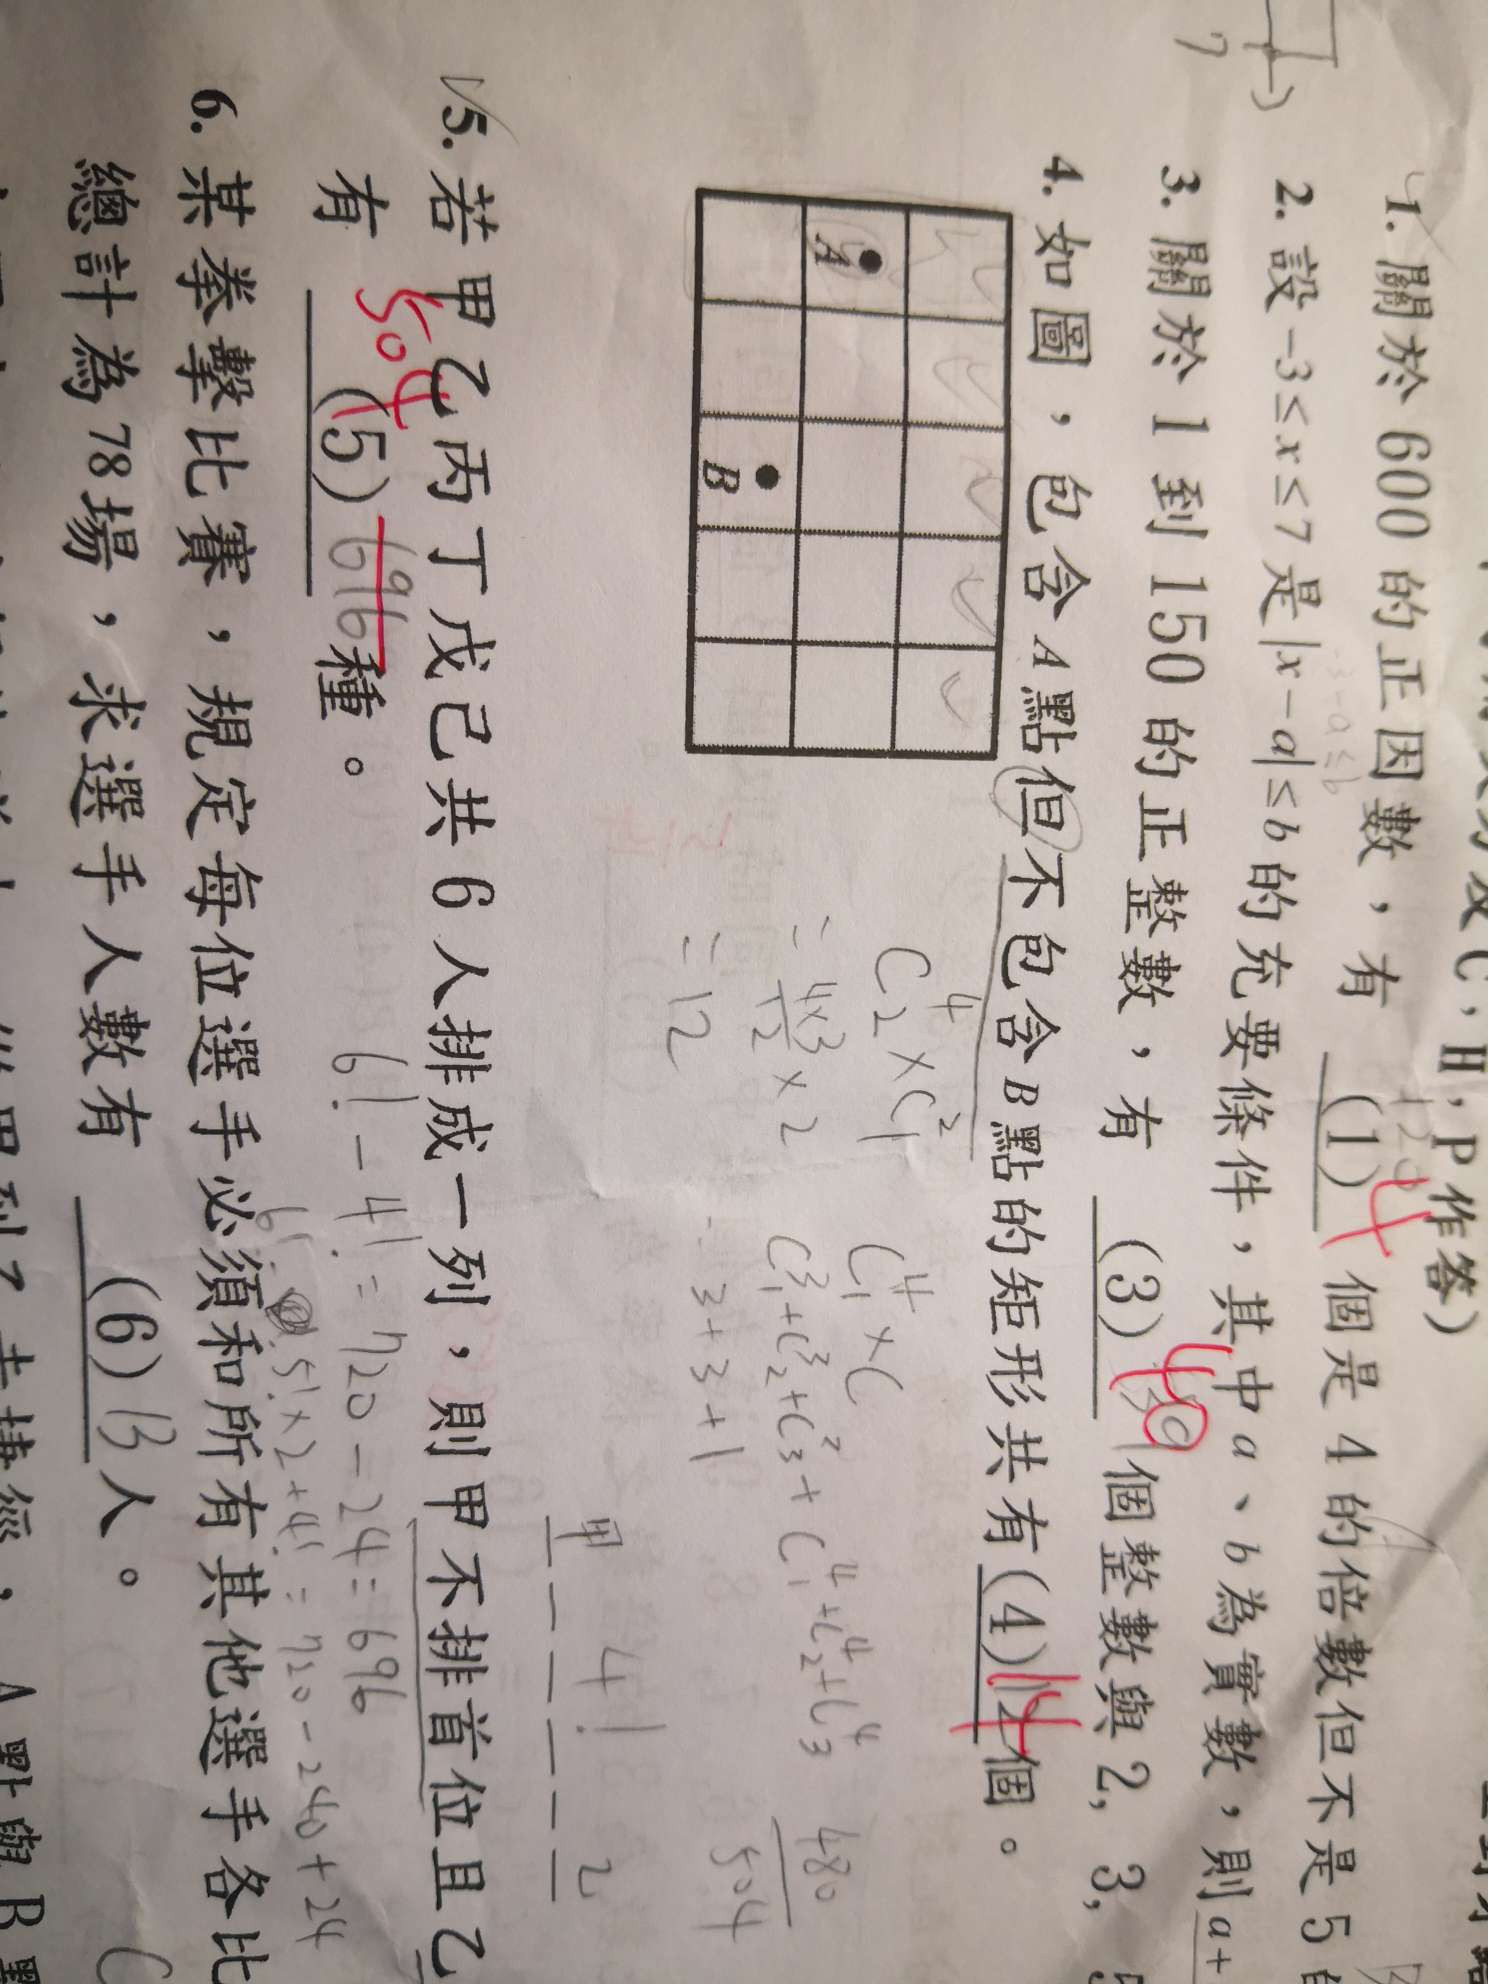 C，H，P作答）
1. 關於 600 的正因數，有 (1) 4 個是 4 的倍數但不是 5
2. 設 -3≤x≤7 是 |x-a|≤b 的充要條件，其中 a、b 為實數，則 a+
3. 關於 1 到 150 的正整數，有 (3) 40 個整數與 2, 3,
4. 如圖，包含 A 點但不包含 B 點的矩形共有 (4) 個。
A
B
C⁴₂×C²₁
=4×3/2×2
=12
C⁴₁×C
C³₁+C³₂+C³₃+C⁴₁+C⁴₂+C⁴₃
3+3+1
480
504
甲
4!
2
5. 若甲乙丙丁戊己共 6 人排成一列，則甲不排首位且乙
有 504 (5) 696 種。
6!-4!=720-24=696
6! 5!×2+4!=720-240+24
6. 某拳擊比賽，規定每位選手必須和所有其他選手各比
總計為 78 場，求選手人數有 (6) 13 人。